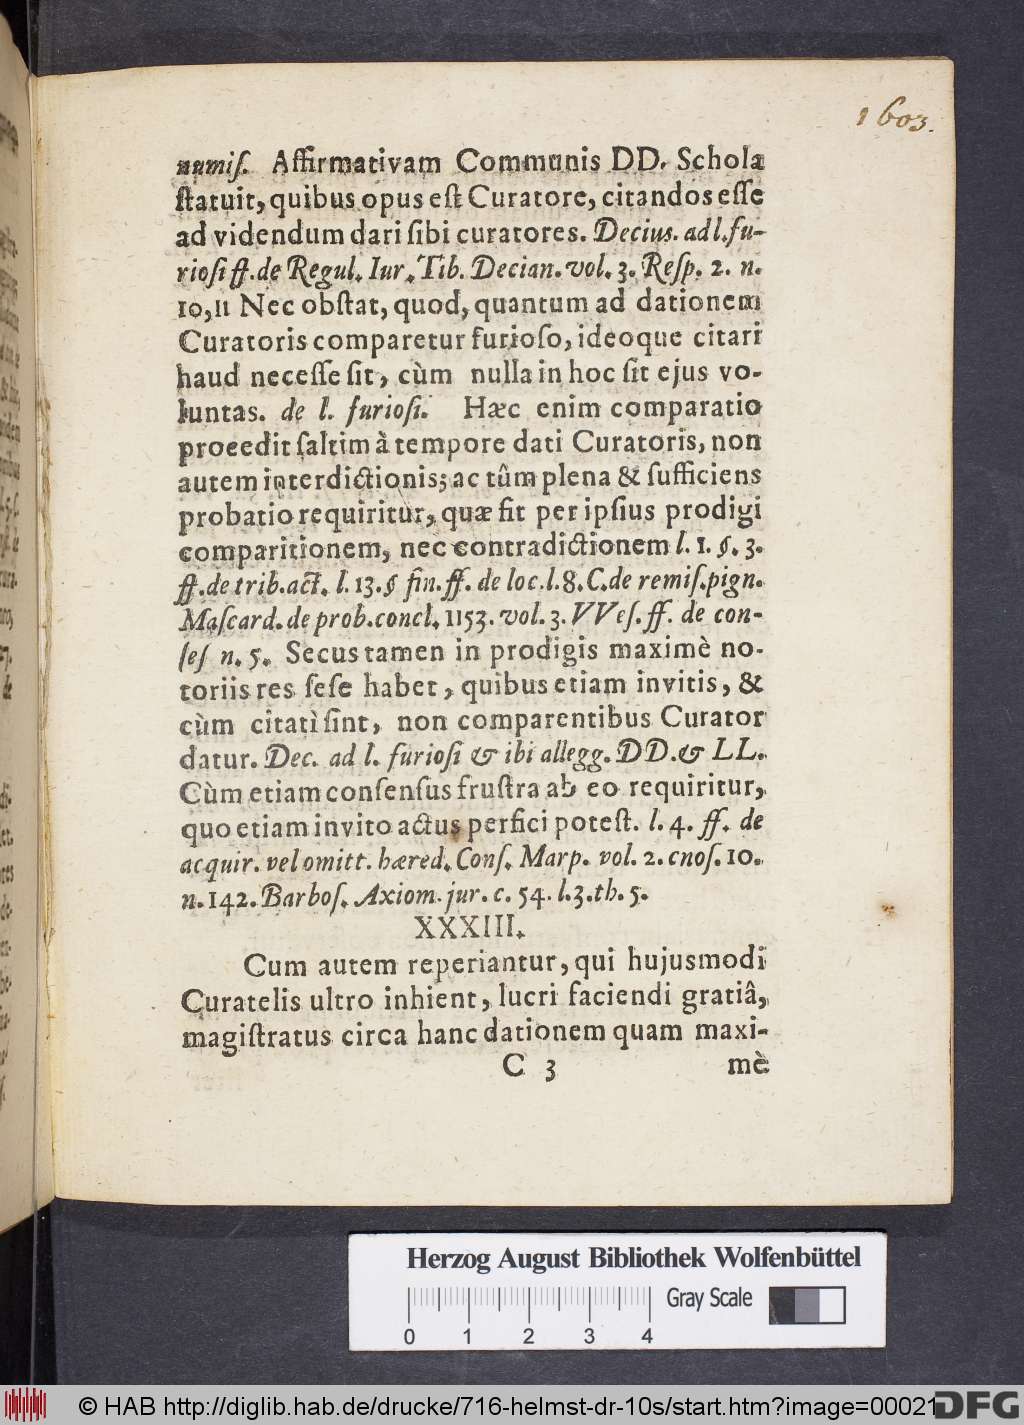 1603.
numiſ. Affirmativam Communis DD. Schola
ſtatuit, quibus opus eſt Curatore, citandos eſſe
ad videndum dari ſibi curatores. Decius. ad l. fu-
rioſi ff. de Regul. Iur. Tib. Decian. vol. 3. Reſp. 2. n.
10, 11 Nec obſtat, quod, quantum ad dationem
Curatoris comparetur furioſo, ideoque citari
haud neceſſe ſit, cùm nulla in hoc ſit ejus vo-
luntas. de l. furioſi. Hæc enim comparatio
procedit ſaltim à tempore dati Curatoris, non
autem interdictionis; ac tûm plena & ſufficiens
probatio requiritur, quæ fit per ipſius prodigi
comparitionem, nec contradictionem l. 1. §. 3.
ff. de trib. act. l. 13. § fin. ff. de loc. l. 8. C. de remiſ. pign.
Maſcard. de prob. concl. 1153. vol. 3. VVeſ. ff. de con-
ſeſ n. 5. Secus tamen in prodigis maximè no-
toriis res ſeſe habet, quibus etiam invitis, &
cùm citati ſint, non comparentibus Curator
datur. Dec. ad l. furioſi & ibi allegg. DD. & LL.
Cùm etiam conſenſus fruſtra ab eo requiritur,
quo etiam invito actus perfici poteſt. l. 4. ff. de
acquir. vel omitt. hæred. Conſ. Marp. vol. 2. cnoſ. 10.
n. 142. Barboſ. Axiom. jur. c. 54. l. 3. th. 5.
XXXIII.
Cum autem reperiantur, qui hujusmodi
Curatelis ultro inhient, lucri faciendi gratiâ,
magiſtratus circa hanc dationem quam maxi-
C 3 mè
Herzog August Bibliothek Wolfenbüttel
Gray Scale
0 1 2 3 4
© HAB http://diglib.hab.de/drucke/716-helmst-dr-10s/start.htm?image=00021
DFG